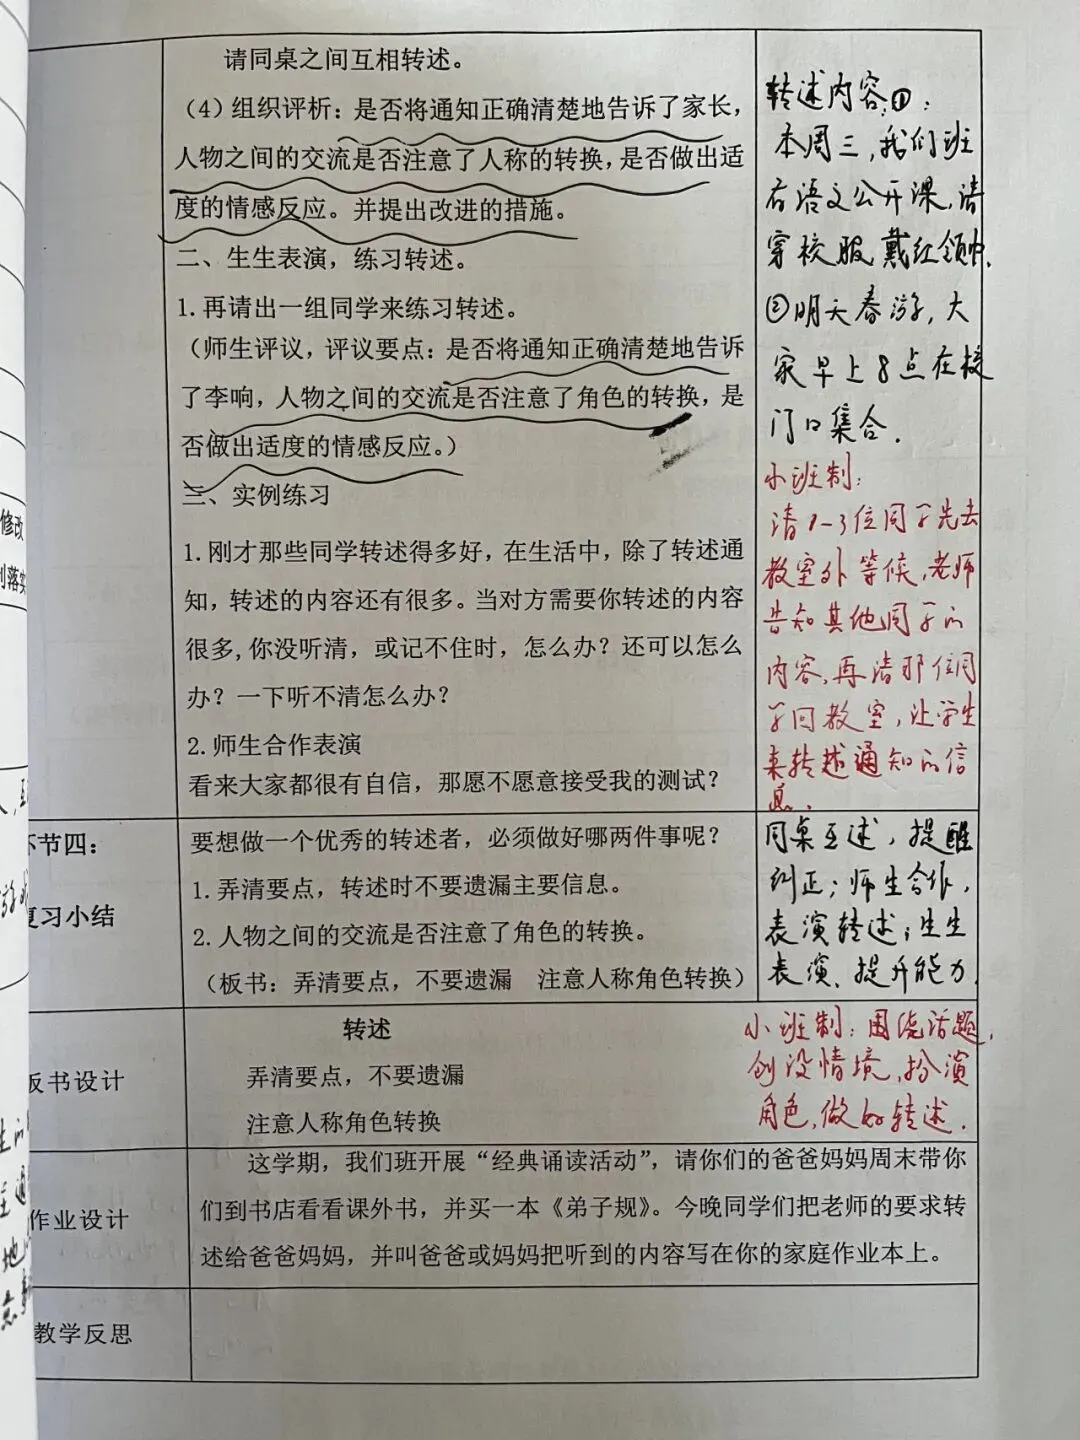 请同桌之间互相转述。
（4）组织评析：是否将通知正确清楚地告诉了家长，
人物之间的交流是否注意了人称的转换，是否做出适
度的情感反应。并提出改进的措施。
二、生生表演，练习转述。
1.再请出一组同学来练习转述。
（师生评议，评议要点：是否将通知正确清楚地告诉
了李响，人物之间的交流是否注意了角色的转换，是
否做出适度的情感反应。）
三、实例练习
1.刚才那些同学转述得多好，在生活中，除了转述通
知，转述的内容还有很多。当对方需要你转述的内容
很多,你没听清，或记不住时，怎么办？还可以怎么
办？一下听不清怎么办？
2.师生合作表演
看来大家都很有自信，那愿不愿意接受我的测试？
转述内容:①:
本周三,我们班
有语文公开课,请
穿校服,戴红领巾.
②明天春游,大
家早上8点在校
门口集合.
小班制:
请1-3位同学先去
教室外等候,老师
告知其他同学的
内容,再请那位同
学回教室,让学生
来转述通知的信
息.
修改
落实
环节四：
复习小结
要想做一个优秀的转述者，必须做好哪两件事呢？
1.弄清要点，转述时不要遗漏主要信息。
2.人物之间的交流是否注意了角色的转换。
（板书：弄清要点，不要遗漏 注意人称角色转换）
同桌互述,提醒
纠正;师生合作,
表演转述;生生
表演、提升能力
板书设计
转述
弄清要点，不要遗漏
注意人称角色转换
小班制:围绕话题,
创设情境,扮演
角色,做好转述.
作业设计
这学期，我们班开展“经典诵读活动”，请你们的爸爸妈妈周末带你
们到书店看看课外书，并买一本《弟子规》。今晚同学们把老师的要求转
述给爸爸妈妈，并叫爸爸或妈妈把听到的内容写在你的家庭作业本上。
教学反思